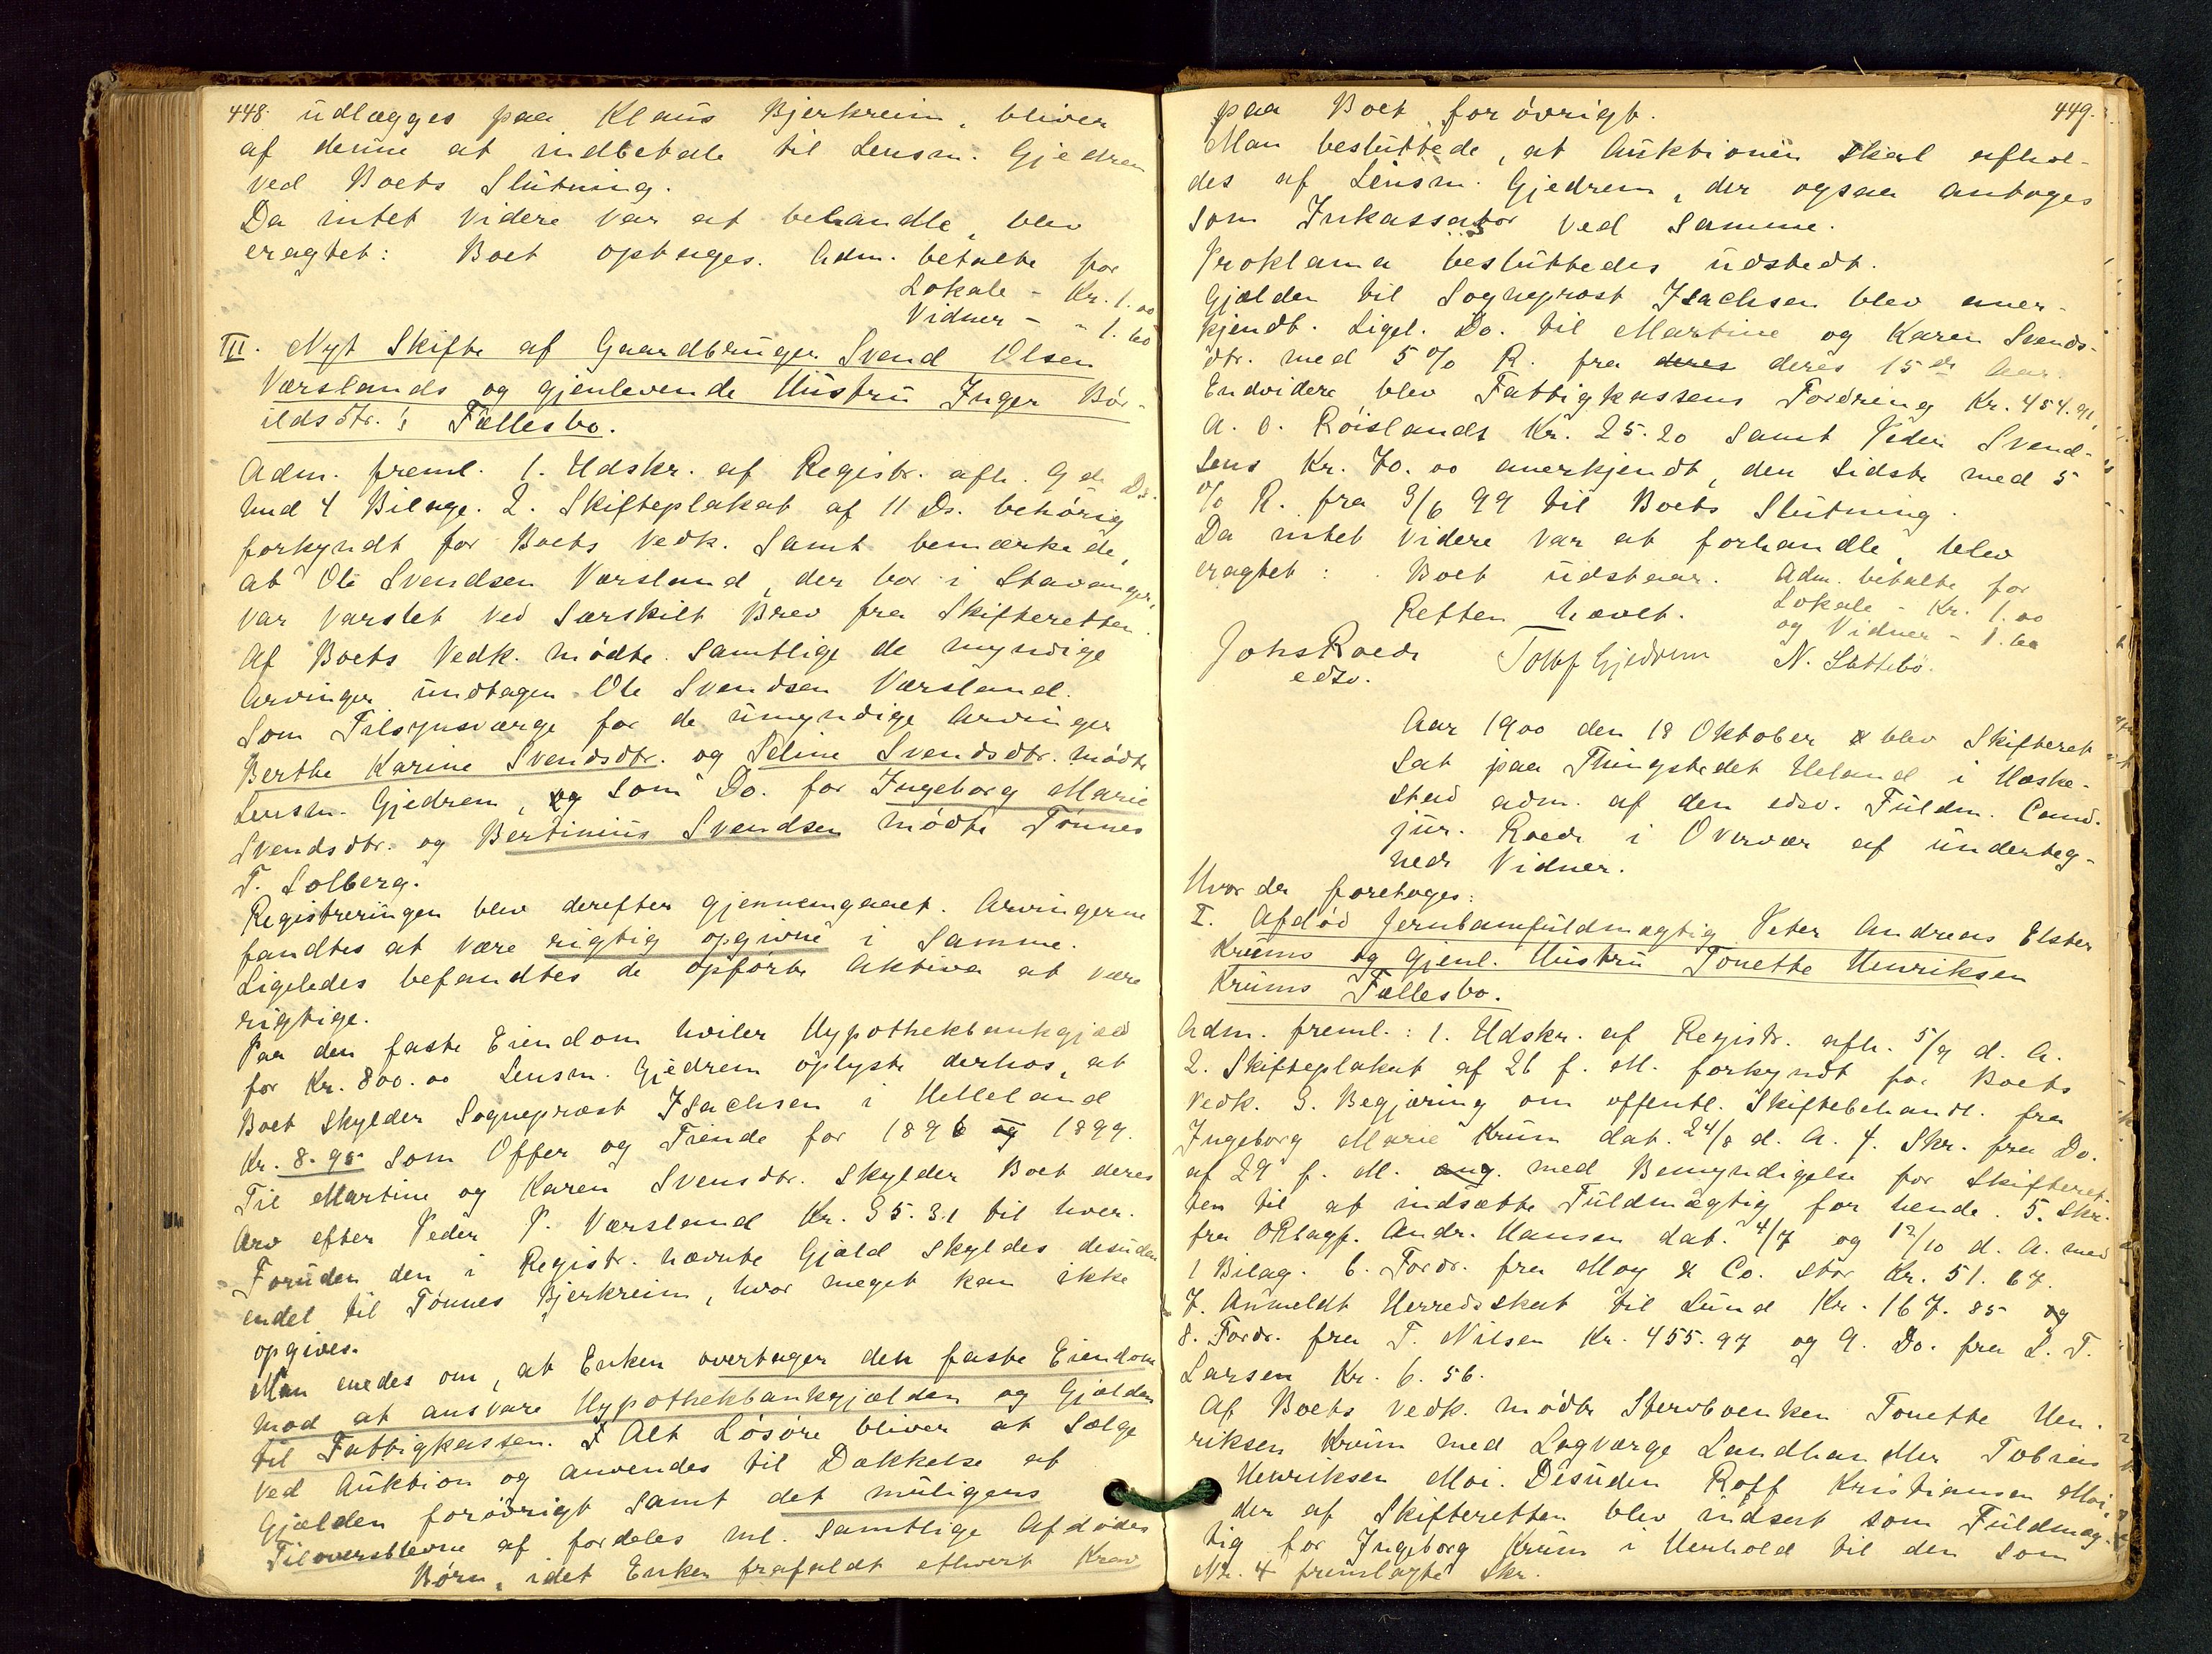 448. udlægges paa Klaus Bjerkreim, bliver
af denne at indbetale til Lensm. Gjedrem
ved Boets Slutning.
Da intet videre var at behandle, blev
eragtet: Boet optages. Adm. betalte for
Lokale - Kr. 1.00
Vidner - " 1.60
III. Nyt Skifte af Gaardbruger Svend Olsen
Værslands og gjenlevende Hustru Inger Bór-
ildsdtr.'s Fællesbo.
Adm. freml. 1. Udskr. af Registr. afh. 9 de Ds.
med 4 Bilage. 2. Skifteplakat af 11 Ds. behórig
forkyndt for Boets Vedk. samt bemærkede,
at Ole Svendsen Værsland, der bor i Stavanger,
var varslet ved særskilt Brev fra Skifteretten.
Af Boets Vedk. módte samtlige de myndige
Arvinger undtagen Ole Svendsen Værsland.
Som Tilsynsværge for de umyndige Arvinger
Berthe Karine Svendsdtr. og Seline Svendsdtr. módte
Lensm. Gjedrem, og som Do. for Ingeborg Marie
Svendsdtr. og Bertinius Svendsen módte Tónnes
T. Solberg.
Registreringen blev derefter gjennemgaaet. Arvingerne
fandtes at være rigtig opgivne i samme.
Ligeledes befandtes de opfórte Aktiva at være
rigtige.
Paa den faste Eiendom hviler Hypothekbankgjæld
for Kr. 800.00 Lensm. Gjedrem oplyste derhos, at
Boet skylder Sogneprest Isachsen i Helleland
Kr. 8.95 som Offer og Tiende for 1896 og 1899.
Til Martine og Karen Svensdtr. skylder Boet deres
Arv efter Peder P. Værsland Kr. 35.31 til hver.
Foruden den i Registr. nævnte Gjæld skyldes desuden
endel til Tónnes Bjerkreim, hvor meget kan ikke
opgives.
Man enedes om, at Enken overtager den faste Eiendom
mod at ansvare Hypothekbankgjælden og Gjælden
til Fattigkassen. Alt Lósóre bliver at sælge
ved Auktion og anvendes til Dækkelse af
Gjælden foróvrigt samt det muligens
Tiloversblevne af fordeles ml. samtlige Afdódes
Bórn, idet Enken frafaldt ethvert Krav
449.
paa Boet foróvrigt.
Man besluttede, at Auktionen skal afhol-
des af Lensm. Gjedrem, der ogsaa antoges
som Inkassator ved samme.
Proklama besluttedes udstedt.
Gjælden til Sogneprost Isachsen blev aner-
kjendt. Ligel. Do. til Martine og Karen Svends-
dtr. med 5 % R. fra deres deres 15 de Aar.
Endvidere blev Fattigkassens Fordring Kr. 454.91,
A. O. Róislands Kr. 25.20 samt Peder Svend-
sens Kr. 70.00 anerkjendt, den sidste med 5
% R. fra 3/6 99 til Boets Slutning.
Da intet videre var at forhandle, blev
eragtet: Boet udstaar. Adm. betalte for
Lokale - Kr. 1.00
Retten hævet. og Vidner - 1.60
Johs Roede Tollf Gjedrem N. Slettebó.
edsv.
Aar 1900 den 18 Oktober blev Skifteret
sat paa Thingstedet Heland i Heske-
stad adm. af den edsv. Fuldm. Cand.
jur. Roede i Overvær af underteg-
nede Vidner.
Hvor da foretoges:
I. Afdód Jernbanefuldmægtig Peter Andreas Elster
Krums og gjenl. Hustru Tonette Henriksen
Krums Fællesbo.
Adm. freml.: 1. Udskr. af Registr. afh. 5/9 d. A.
2. Skifteplakat af 26 f. M. forkyndt for Boets
Vedk. 3. Begjæring om offentl. Skiftebehandl. fra
Ingeborg Marie Krum dat. 24/8 d. A. 4. Skr. fra Do.
af 29 f. M. ang. med Bemyndigelse for Skifteret-
ten til at indsætte Fuldmægtig for hende. 5. Skr.
fra ORsagf. Andr. Hansen dat. 4/7 og 12/10 d. A. med
1 Bilag. 6. Fordr. fra Moy & Co. stor Kr. 51.67.
7. Anmeldt Herredsskat til Lund Kr. 167.85 og
8. Fordr. fra T. Nilsen Kr. 455.97 og 9. Do. fra L. T.
Larsen Kr. 6.56.
Af Boets Vedk. módte Stervboenken Tonette Hen-
riksen Krum med Lagværge Landhandler Tobias
Henriksen Moi. Desuden Roff Kristiansen Moi,
der af Skifteretten blev indsat som Fuldmæg-
tig for Ingeborg Krum i Henhold til den som
No. 4 fremlagte Skr.